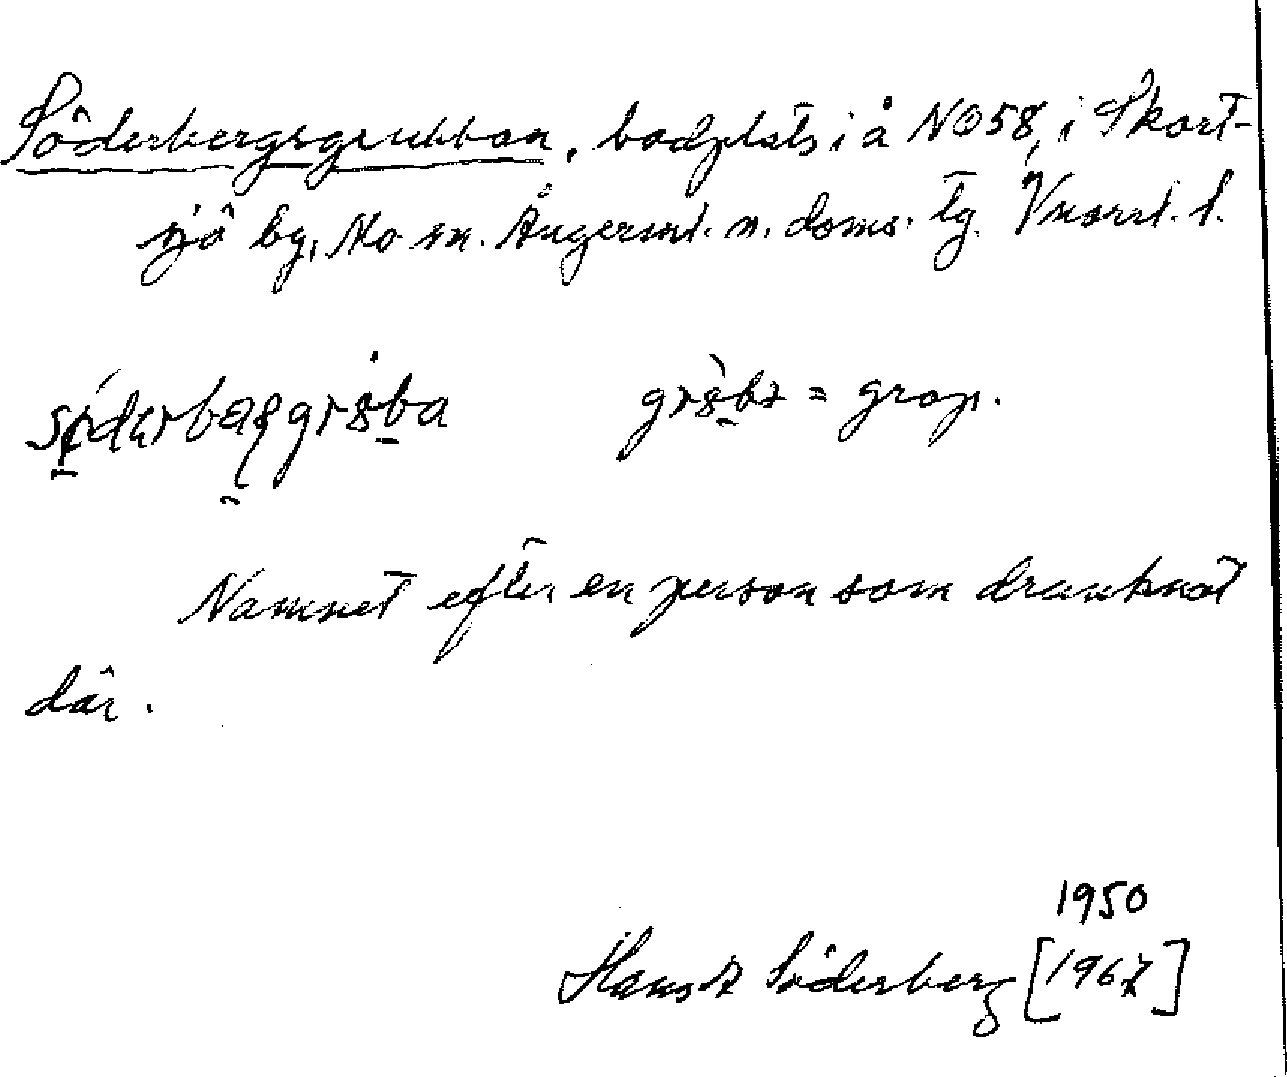 Söderbergsgrubban, badplats i å NO58, i Skort-
sjö by, Mo sn. Ångerml. n. doms. tg. Vnorrl. l.
= grop.
Namnet efter en person som drunknat
där.
1950
Söderberg [1967]